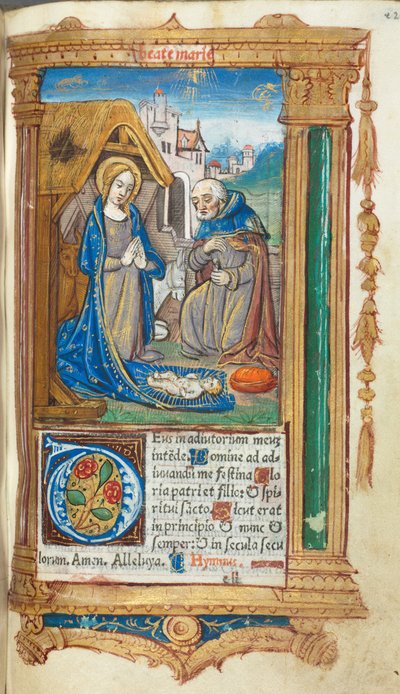 beate marie
Eus in adiutorium meuȝ
intēde. Domine ad ad
iuvandū me festina Glo
ria patri et filio: & spi
ritui sācto. Sicut erat
in principio & nunc &
semper: & in secula secu
lorum. Amen. Alleluya. Hymnus.